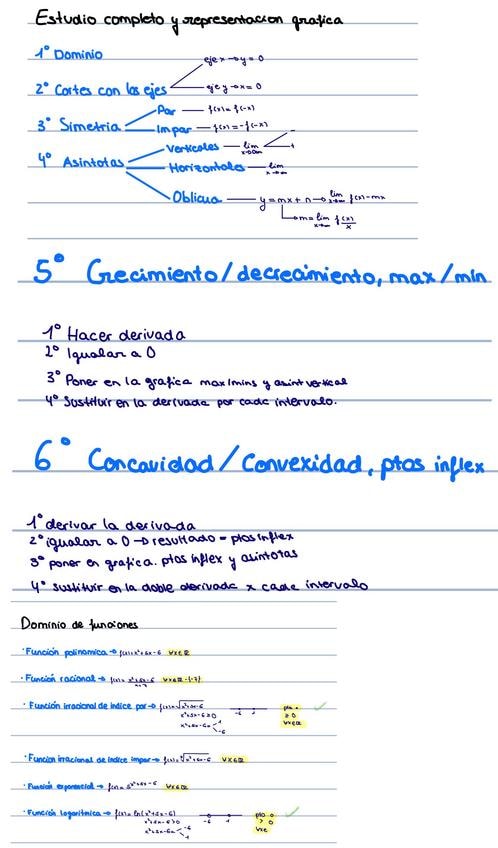 Estudio completo y representacion grafica
1º Dominio
eje x → y = 0
2º Cortes con los ejes
eje y → x = 0
Par — f(x) = f(-x)
3º Simetria
Impar — f(x) = -f(-x)
Verticales — lim
4º Asintotas
Horizontales — lim x→∞
Oblicua — y = mx + n → lim x→∞ f(x) - mx
m = lim x→∞ f(x)/x
5º Crecimiento/decrecimiento, max/min
1º Hacer derivada
2º Igualar a 0
3º Poner en la grafica max/mins y asint vertical
4º Sustituir en la derivada por cada intervalo.
6º Concavidad/Convexidad, ptos inflex
1º derivar la derivada
2º igualar a 0 → resultado = ptos inflex
3º poner en grafica. ptos inflex y asintotas
4º sustituir en la doble derivada x cada intervalo
Dominio de funciones
· Función polinomica → f(x) = x²+5x-6 ∀x∈ℝ
· Función racional →
· Función irracional de indice par →
x²+5x-6≥0
-6 1
≥0
· Funcion irracional de indice impar → ∀x∈ℝ
· Función exponencial → f(x) = 5^x²+5x-6 ∀x∈ℝ
· Función logaritmica → f(x) = ln(x²+5x-6)
x²+5x-6>0
-6 1
> 0